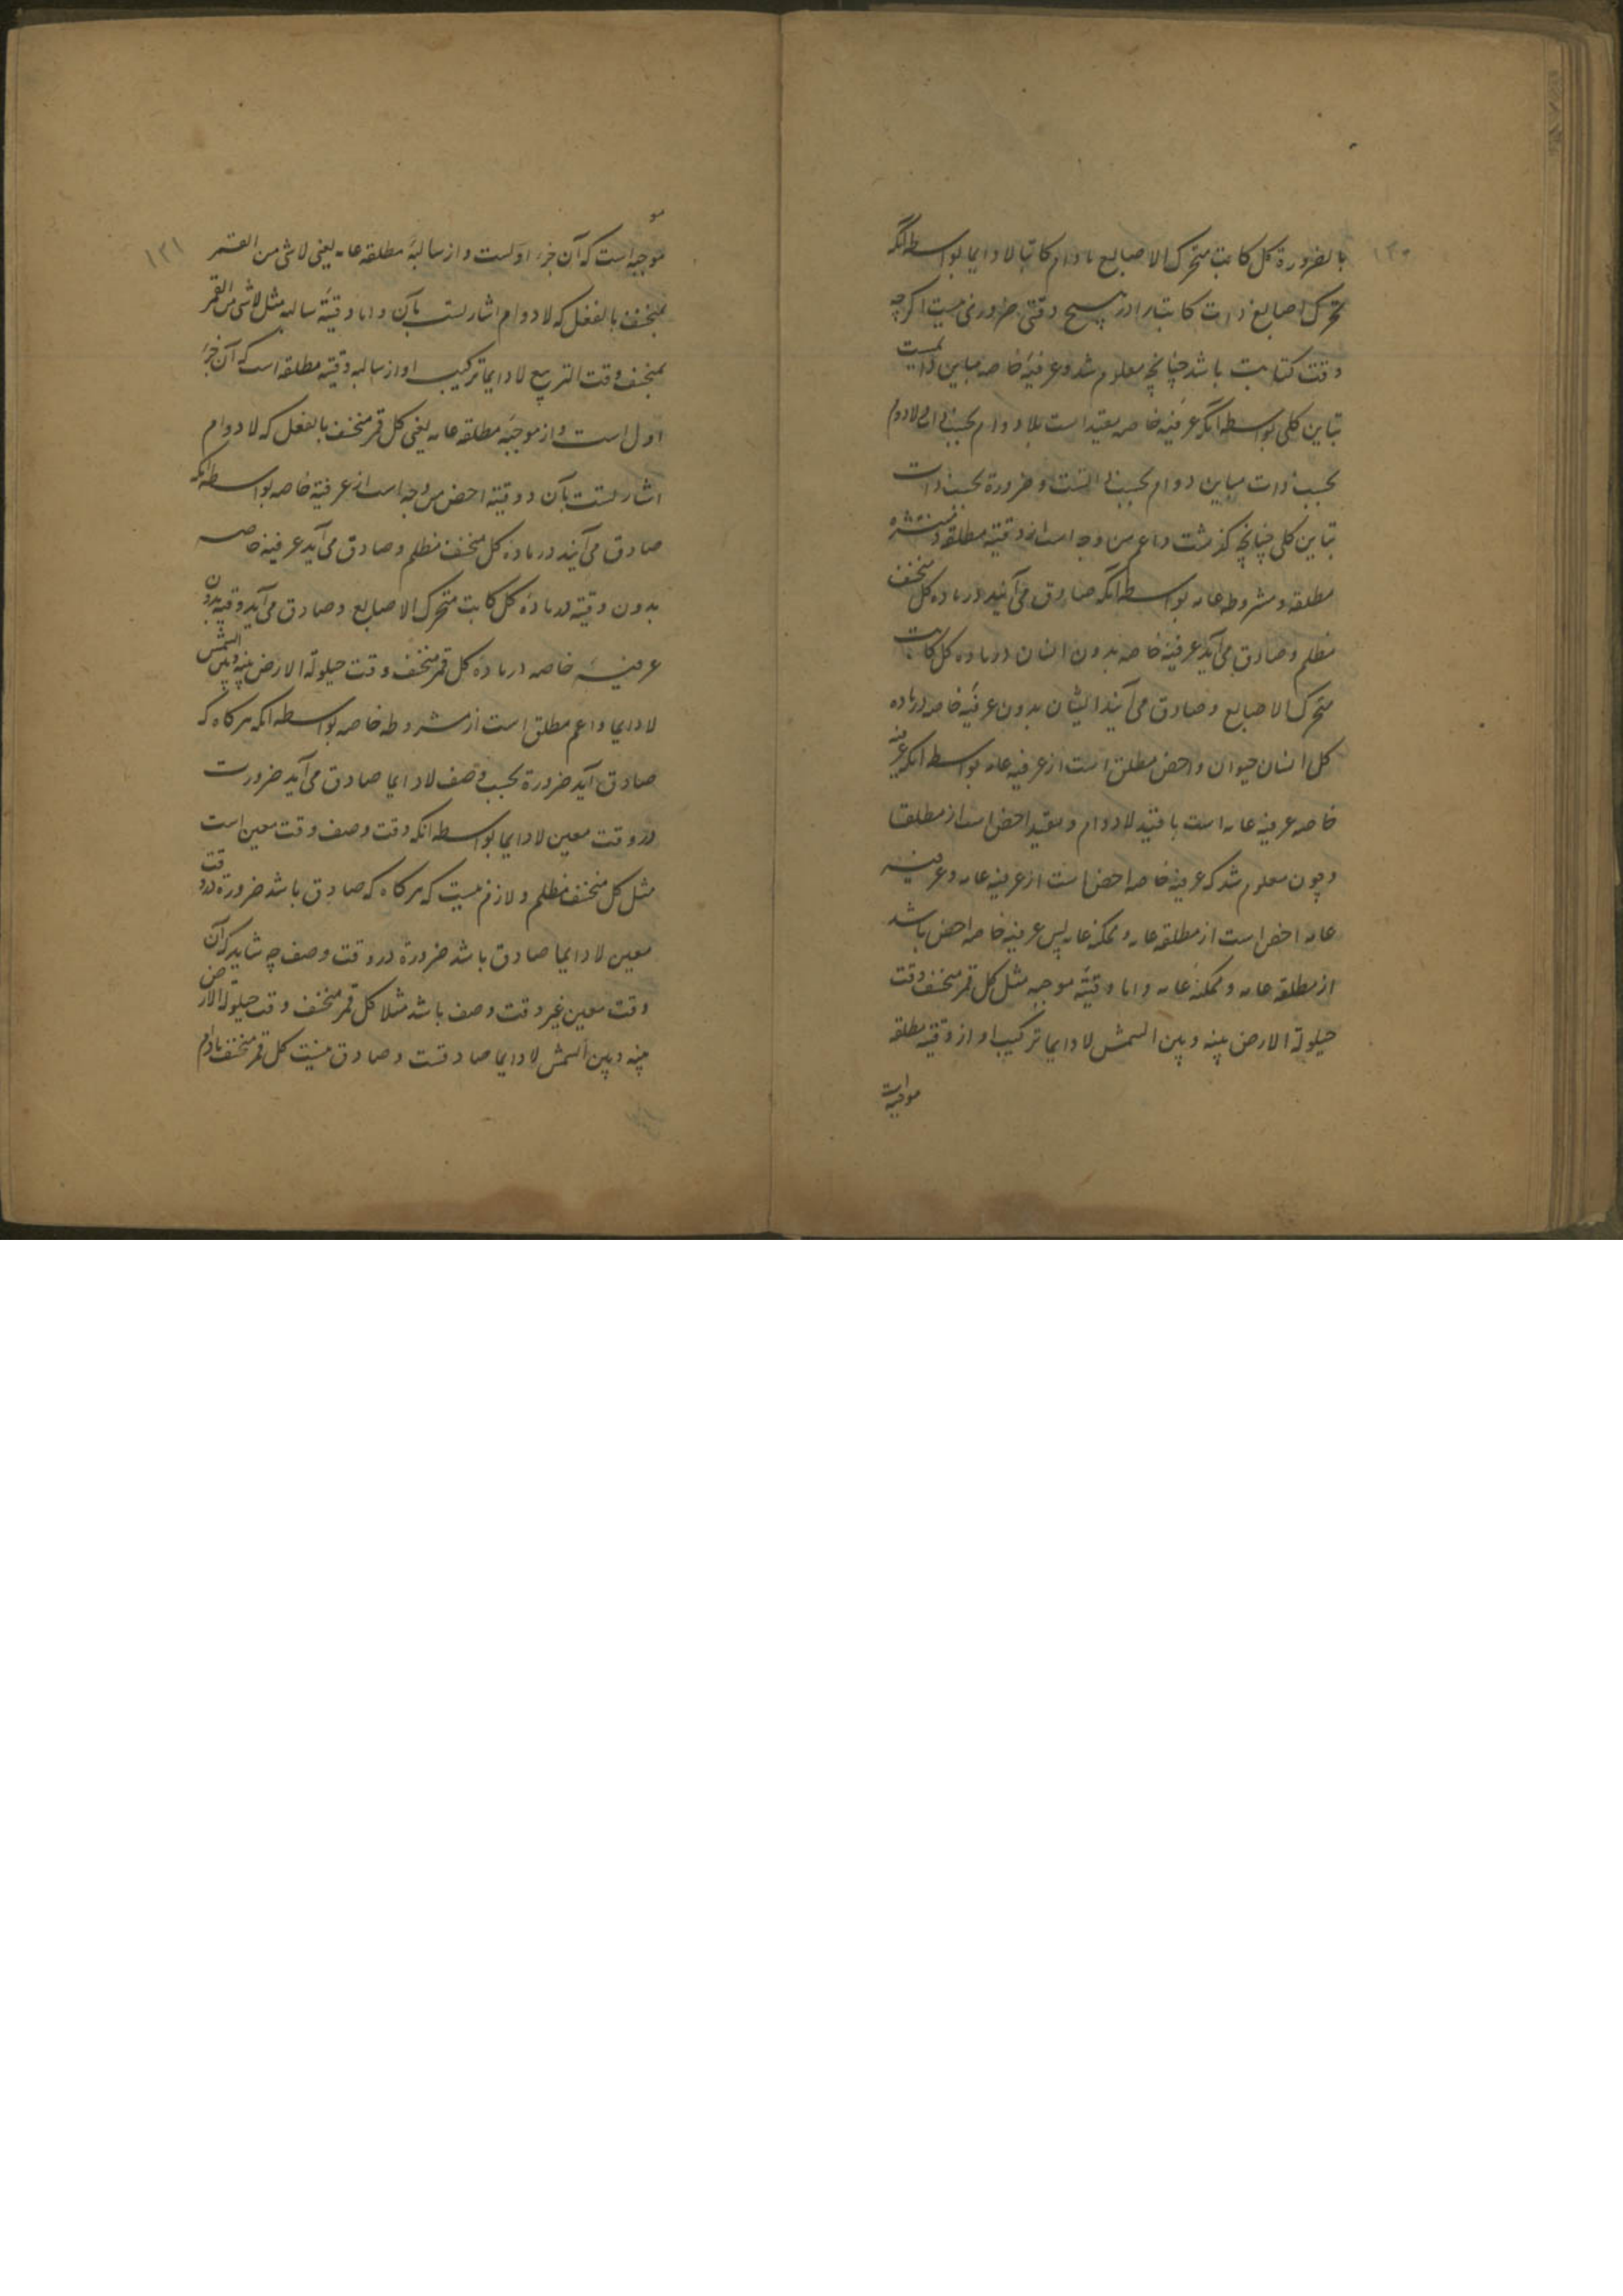 ۱۳۰
بالضرورة کل کاتب متحرک الاصابع مادام کاتبا لا دایما بواسطه آنکه
تحرک اصابع ذات کاتب را در هیچ وقتی ضروری نیست اگرچه
وقت کتابت باشد چنانچه معلوم شد و عرفیه خاصه مباین دایمیست
تباین کلی بواسطه آنکه عرفیه خاصه مقید است بلا دوام بحسب ذات و لا دوام
بحسب ذات مباین دوام بحسب ذاتست و ضرورة بحسب ذات
تباین کلی چنانچه گذشت و اعم من وجه است از وقتیه مطلقه و منتشره
مطلقه و مشروطه عامه بواسطه آنکه صادق می آیند در ماده کل منخسف
مظلم و صادق می آید عرفیه خاصه بدون ایشان در ماده کل کاتب
متحرک الاصابع و صادق می آیند ایشان بدون عرفیه خاصه در ماده
کل انسان حیوان و اخص مطلق است از عرفیه عامه بواسطه آنکه عرفیه
خاصه عرفیه عامه است با قید لا دوام و مقید اخص است از مطلق
و چون معلوم شد که عرفیه خاصه اخص است از عرفیه عامه و عرفیه
عامه اخص است از مطلقه عامه و ممکنه عامه پس عرفیه خاصه اخص باشد
از مطلقه عامه و ممکنه عامه و اما وقتیه موجبه مثل کل قمر منخسف وقت
حیلولة الارض بینه و بین الشمس لا دایما ترکیب او از وقتیه مطلقه
موجبه است
۱۳۱
موجبه است که آن جزء اولست و از سالبه مطلقه عامه یعنی لاشی من القمر
بمنخسف بالفعل که لا دوام اشارتست بآن و اما وقتیه سالبه مثل لاشی من القمر
بمنخسف وقت التربیع لا دایما ترکیب او از سالبه وقتیه مطلقه است که آن جزء
اول است و از موجبه مطلقه عامه یعنی کل قمر منخسف بالفعل که لا دوام
اشارتست بآن و وقتیه اخص من وجه است از عرفیه خاصه بواسطه آنکه
صادق می آیند در ماده کل منخسف مظلم و صادق می آید عرفیه خاصه
بدون وقتیه در ماده کل کاتب متحرک الاصابع و صادق می آید وقتیه بدون
عرفیه خاصه در ماده کل قمر منخسف وقت حیلولة الارض بینه و بین الشمس
لا دایما و اعم مطلق است از مشروطه خاصه بواسطه آنکه هرگاه که
صادق آید ضرورة بحسب وصف لا دایما صادق می آید ضرورت
در وقت معین لا دایما بواسطه آنکه وقت وصف وقت معین است
مثل کل منخسف مظلم و لازم نیست که هرگاه که صادق باشد ضرورة در وقت
معین لا دایما صادق باشد ضرورة در وقت وصف چه شاید که آن
وقت معین غیر وقت وصف باشد مثلا کل قمر منخسف وقت حیلولة الارض
بینه و بین الشمس لا دایما صادقست و صادق نیست کل قمر منخسف مادام